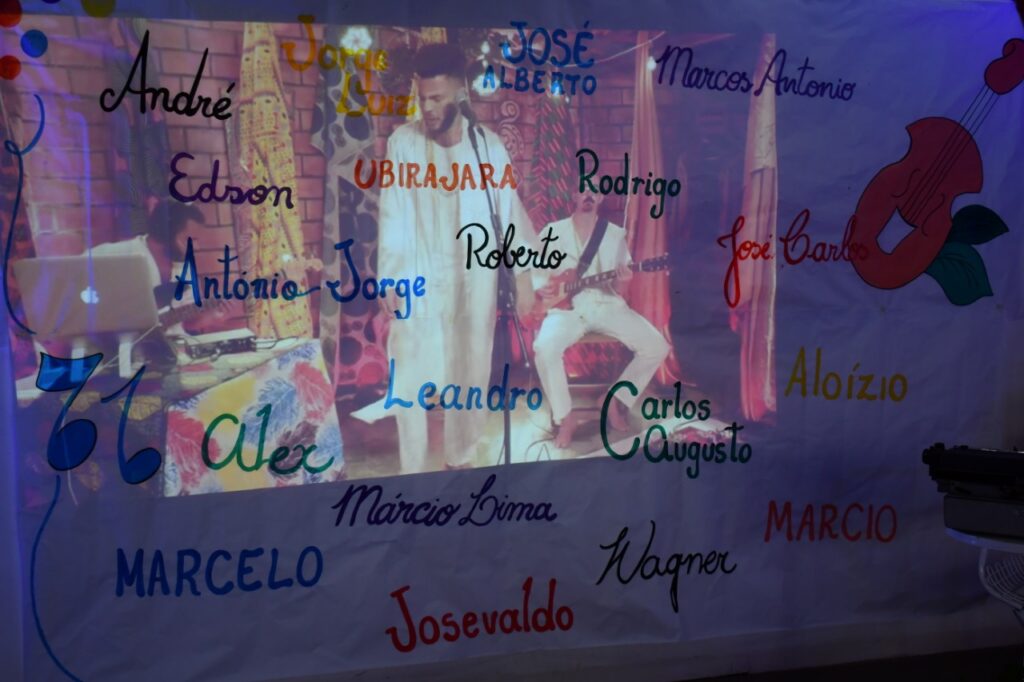 André
Jorge
Luiz
JOSÉ
ALBERTO
Marcos Antonio
Edson
UBIRAJARA
Rodrigo
Roberto
José Carlos
António Jorge
Leandro
Aloízio
Alex
Carlos
Augusto
Márcio Lima
MARCIO
MARCELO
Wagner
Josevaldo